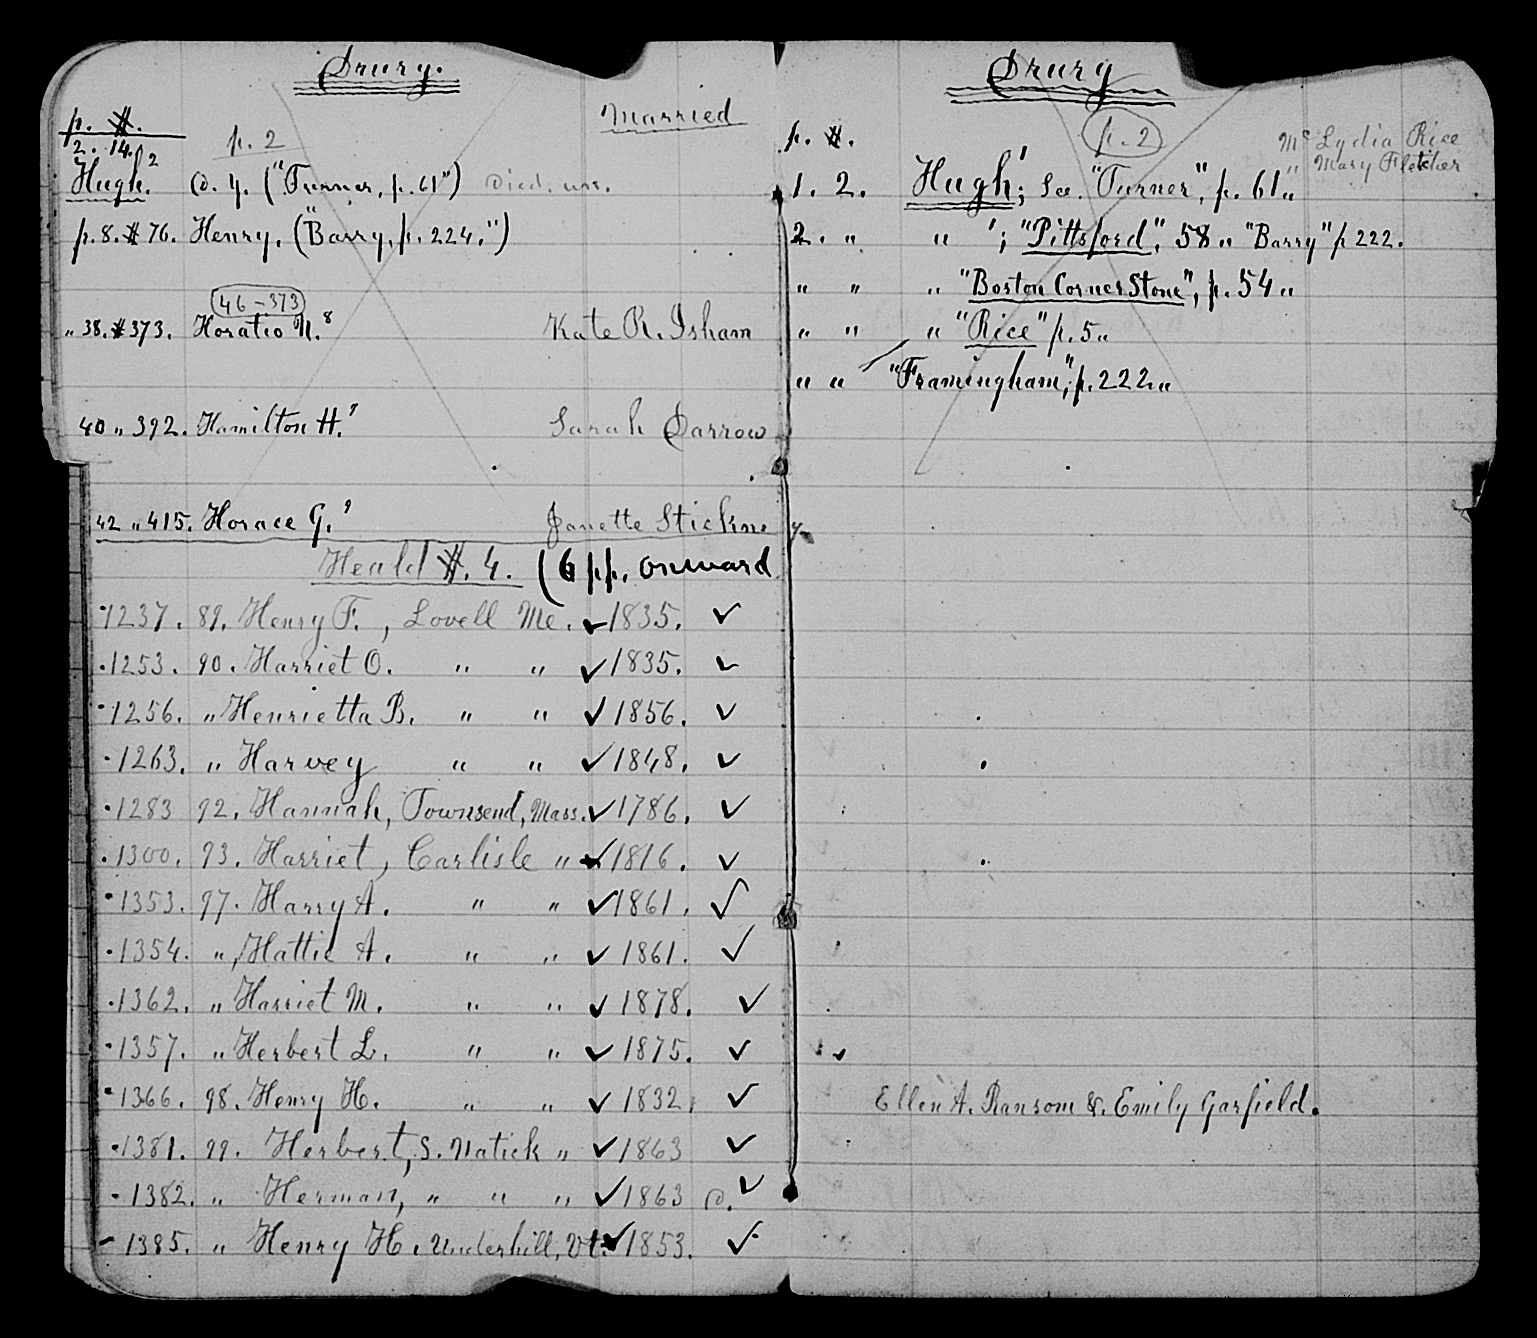 Drury.
p. #. Married
2. 14. p. 2
Hugh.² d. y. ("Turner, p. 61") Died. unm.
p. 8. # 76. Henry. ("Barry, p. 224.")
46-373
" 38. # 373. Horatio N.⁸ Kate R. Isham
40 " 392. Hamilton H.⁹ Sarah Darrow
42 " 415. Horace G.⁹ Janette Stickney
Heald #. 4. (6 pp. onward
1237. 89. Henry F., Lovell Me. ✓ 1835. ✓
1253. 90. Harriet O. " " ✓ 1835. ✓
1256. " Henrietta B. " " ✓ 1856. ✓
1263. " Harvey " " ✓ 1848. ✓
1283 92. Hannah, Townsend, Mass. ✓ 1786. ✓
1300. 93. Harriet, Carlisle " ✓ 1816. ✓
1353. 97. Harry A. " " ✓ 1861. ✓
1354. ", Hattie A. " " ✓ 1861. ✓
1362. " Harriet M. " " ✓ 1878. ✓
1357. " Herbert L. " " ✓ 1875. ✓
1366. 98. Henry H. " " ✓ 1832. ✓
1381. 99. Herbert, S. Natick " ✓ 1863 ✓
1382. " Herman, " " " ✓ 1863 d. ✓
1385. " Henry H. Underhill, Vt. ✓ 1853. ✓
Drury
p. #. p. 2 Lydia Rice
" Mary Fletcher
1. 2. Hugh¹; See. "Turner", p. 61 "
2. " " ¹; "Pittsford", 58 " "Barry" p 222.
" " " "Boston Corner Stone", p. 54 "
" " " "Rice" p. 5 "
" " "Framingham", p. 222 "
Ellen A. Ransom &. Emily Garfield.